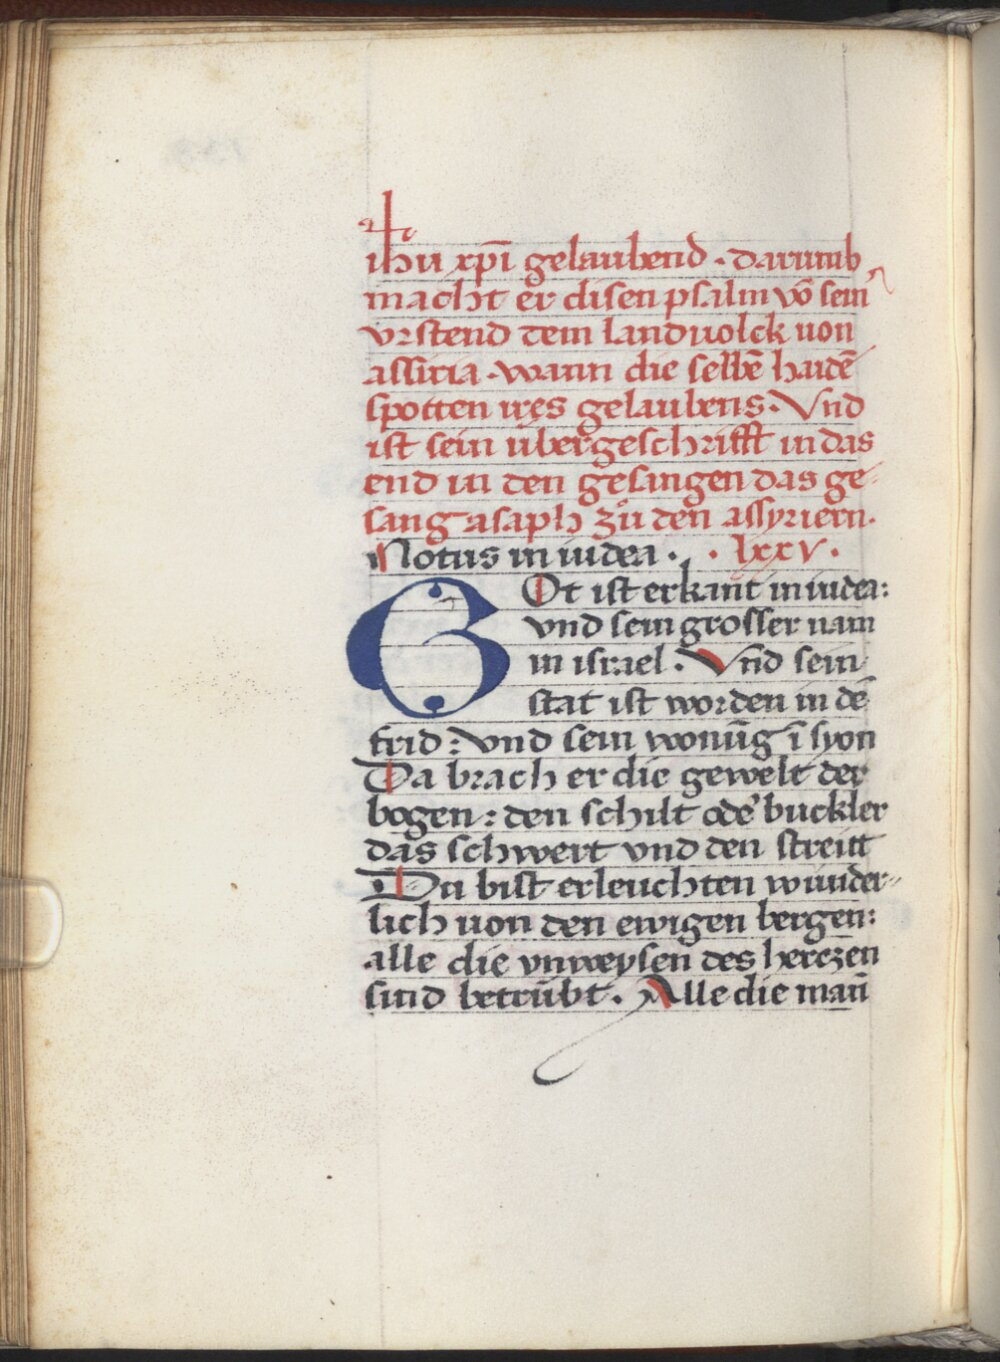 ihu xp̄i gelaubend · darumb
macht er disen psalm vō sein
vrstend dem landuolck uon
assiria · wann die selbē haidē
spotten ires gelaubens · Vnd
ist sein übergeschrifft in das
end in den gesingen das ge-
sang asaph zů den assyriern ·
Notus in iudea · · lxxv ·
GOt ist erkant in iudea:
vnd sein grosser nam
in israel · Vnd sein
stat ist worden in dē
frid: vnd sein wonūg ī syon
Da brach er die gewelt der
bogen: den schilt ode' buckler
das schwert vnd den streitt
Du bist erleuchten wunder-
lich uon den ewigen bergen:
alle die vnweysen des herczen
sind betrübt · Alle die man̄